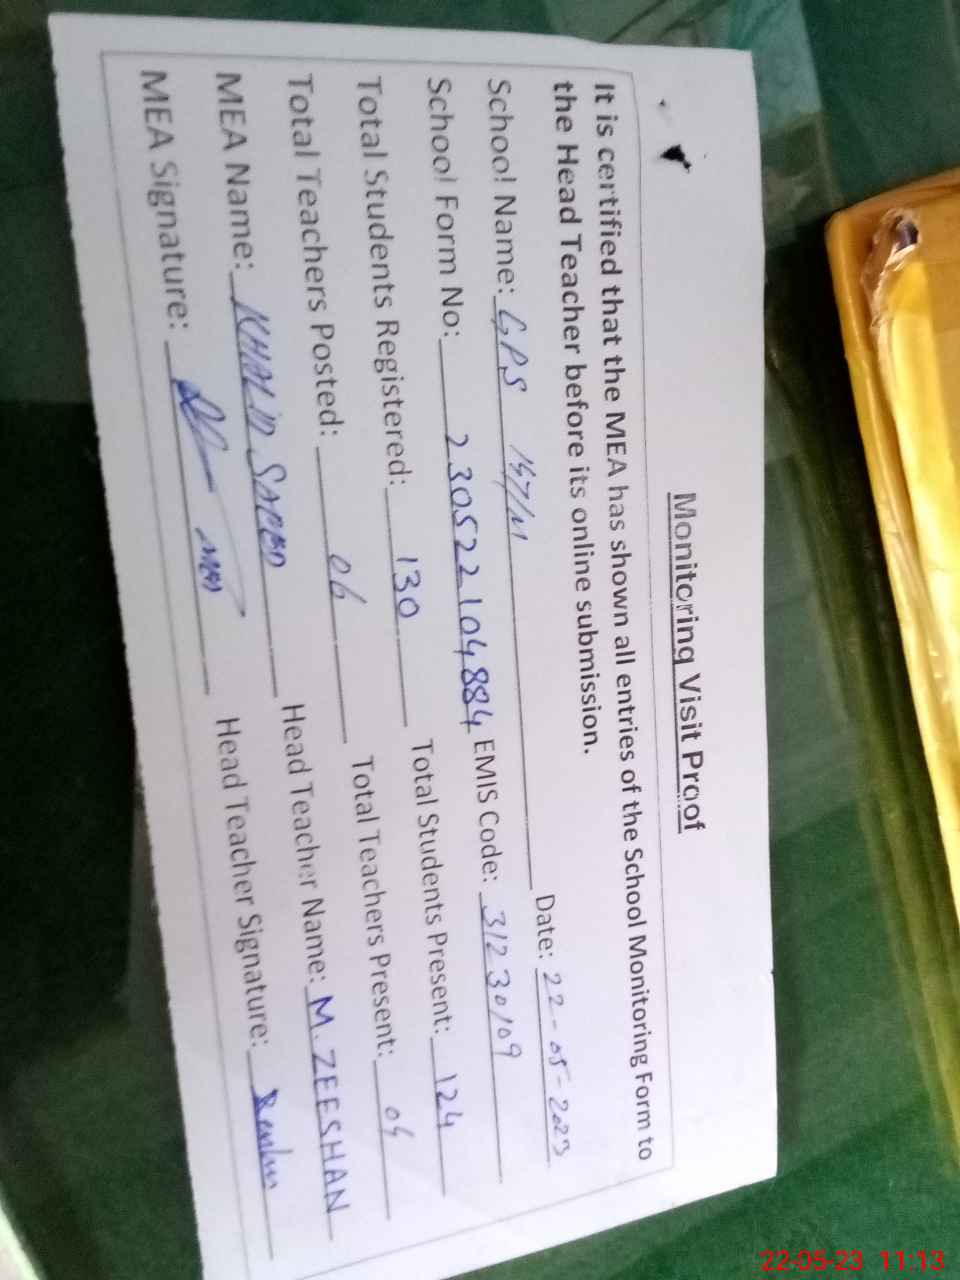 Monitoring Visit Proof
It is certified that the MEA has shown all entries of the School Monitoring Form to
the Head Teacher before its online submission.
School Name: GPS 157/M Date: 22-05-2023
School Form No: 230522104884 EMIS Code: 31230109
Total Students Registered: 130 Total Students Present: 124
Total Teachers Posted: 06 Total Teachers Present: 04
MEA Name: KHALID SAEED Head Teacher Name: M. ZEESHAN
MEA Signature: MEA Head Teacher Signature:
22-05-23 11:13